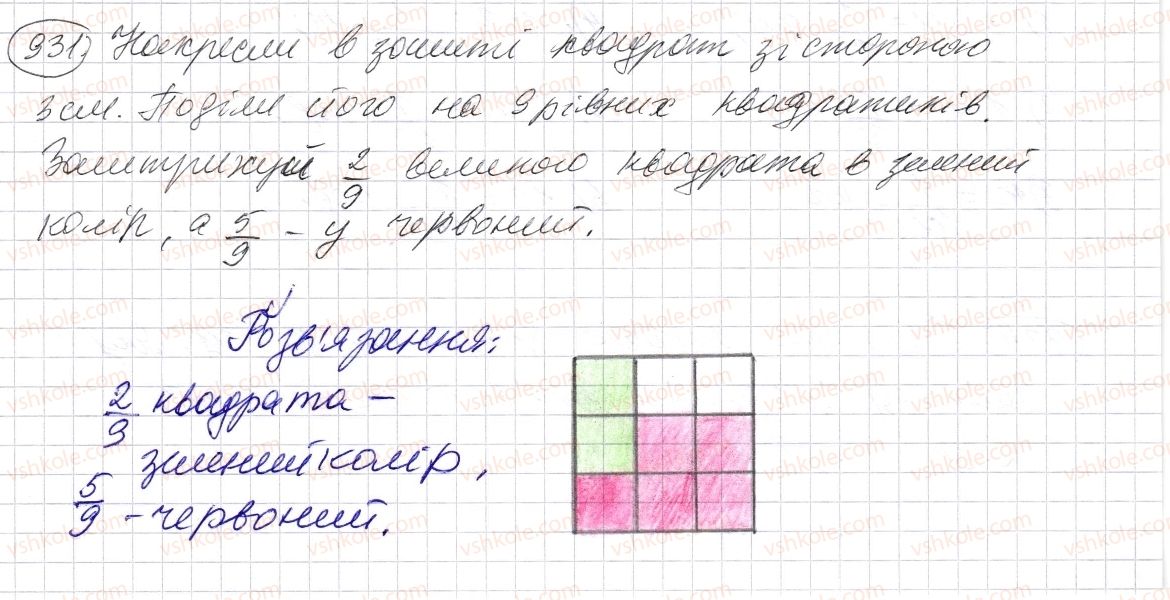 931) Накресли в зошиті квадрат зі стороною
3см. Поділи його на 9 рівних квадратиків.
Заштрихуй 2/9 великого квадрата в зелений
колір, а 5/9 – у червоний.
Розв'язання:
2/9 квадрата –
зелений колір,
5/9 – червоний.